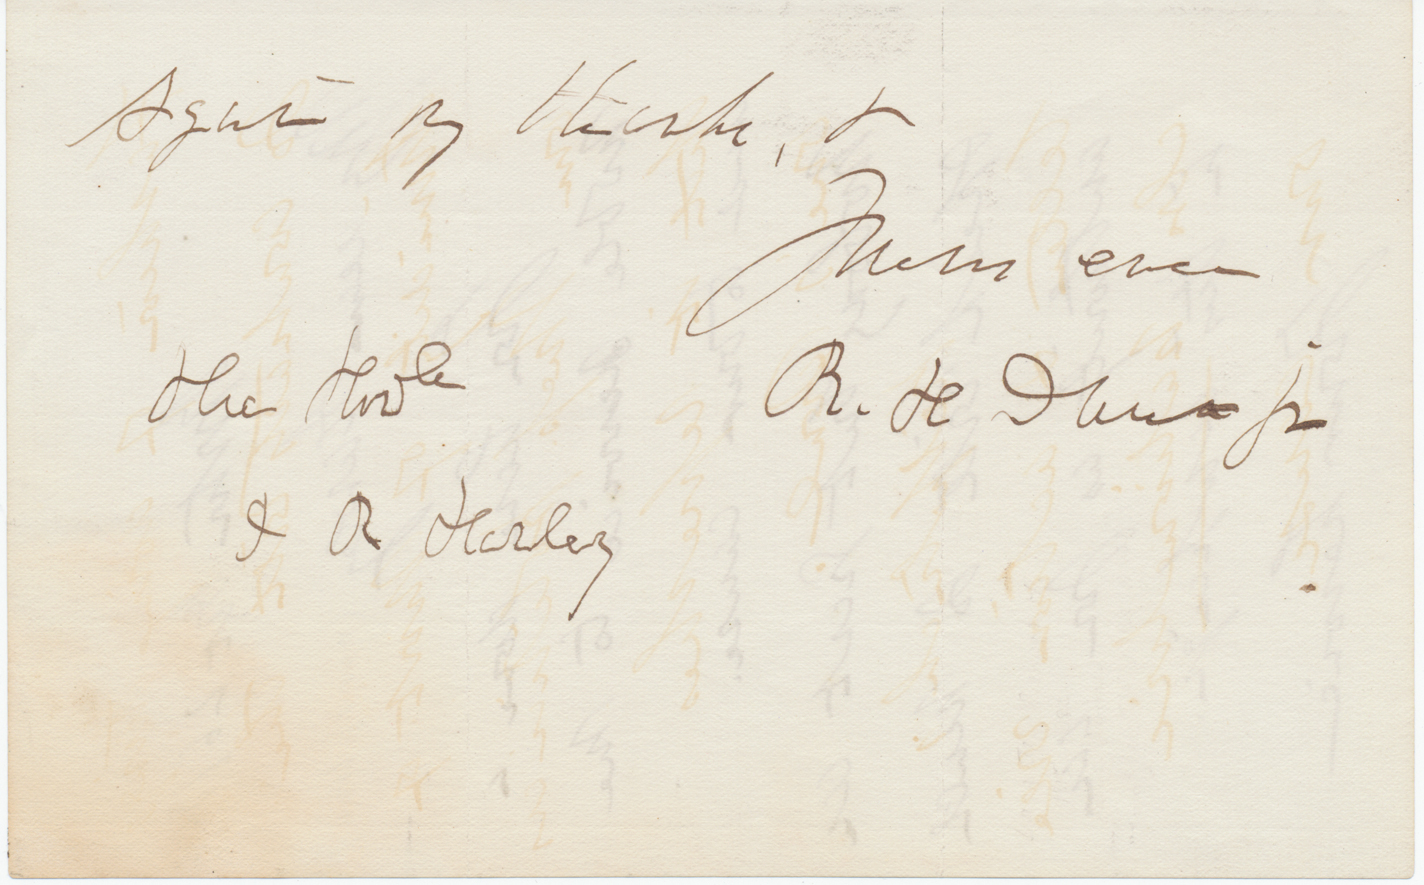 Again my thanks, &
Yours ever
The Honble
R. H Dana Jr
J R Hawley